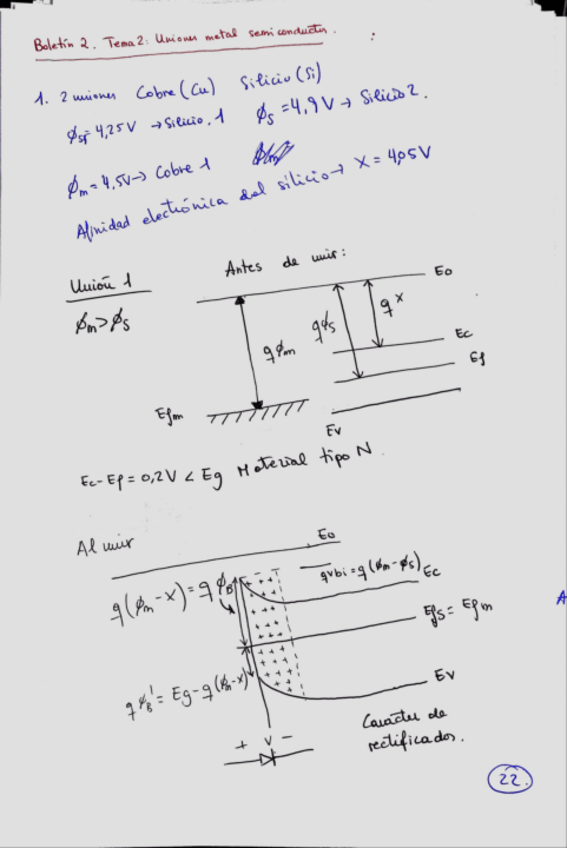 Boletín 2. Tema 2: Uniones metal semiconductor.
1. 2 uniones Cobre (Cu) Silicio (Si)
ϕs1=4,25V → Silicio. 1 ϕs = 4,9V → Silicio 2.
ϕm = 4,5V → Cobre 1
Afinidad electrónica del silicio → X = 4,05 V
Unión 1
Antes de unir:
ϕm > ϕs
E0
qϕm qϕs qx
Ec
Ef
Efm
Ev
Ec-Ef = 0,2V < Eg Material tipo N.
Al unir
E0
q(ϕm-x) = qϕB
qvbi = q(ϕm-ϕs) Ec
Efs = Efm
qϕB' = Eg-q(ϕm-x)
Ev
Caracter de
rectificador.
+ V -
22.
A